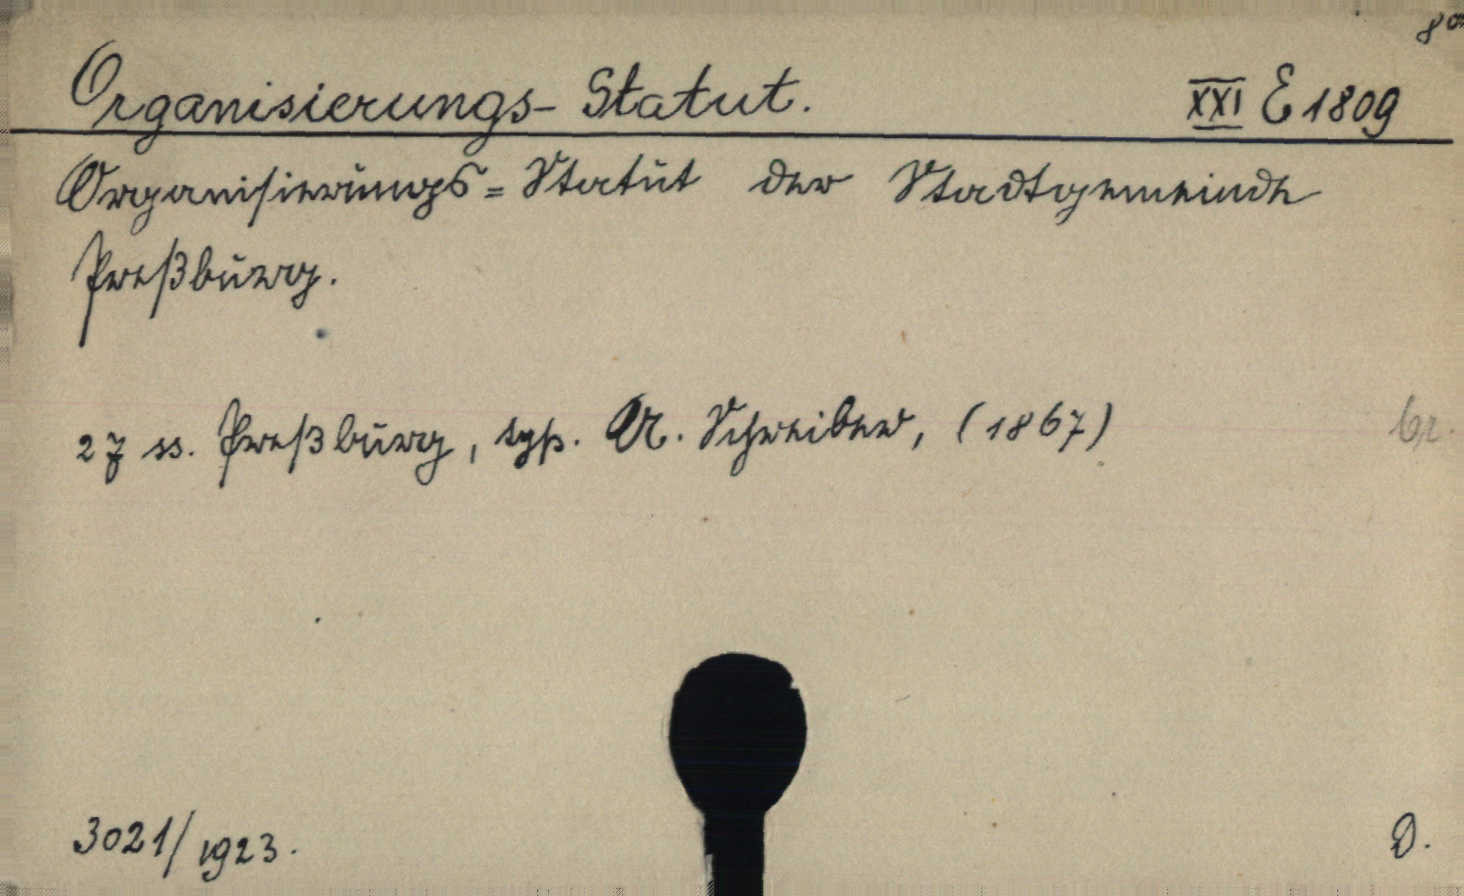 8°
Organisierungs-Statut. XXI E 1809
Organisierungs-Statut der Stadtgemeinde
Preßburg.
27 ss. Preßburg, typ. A. Schreiber, (1867) br.
3021/1923. D.